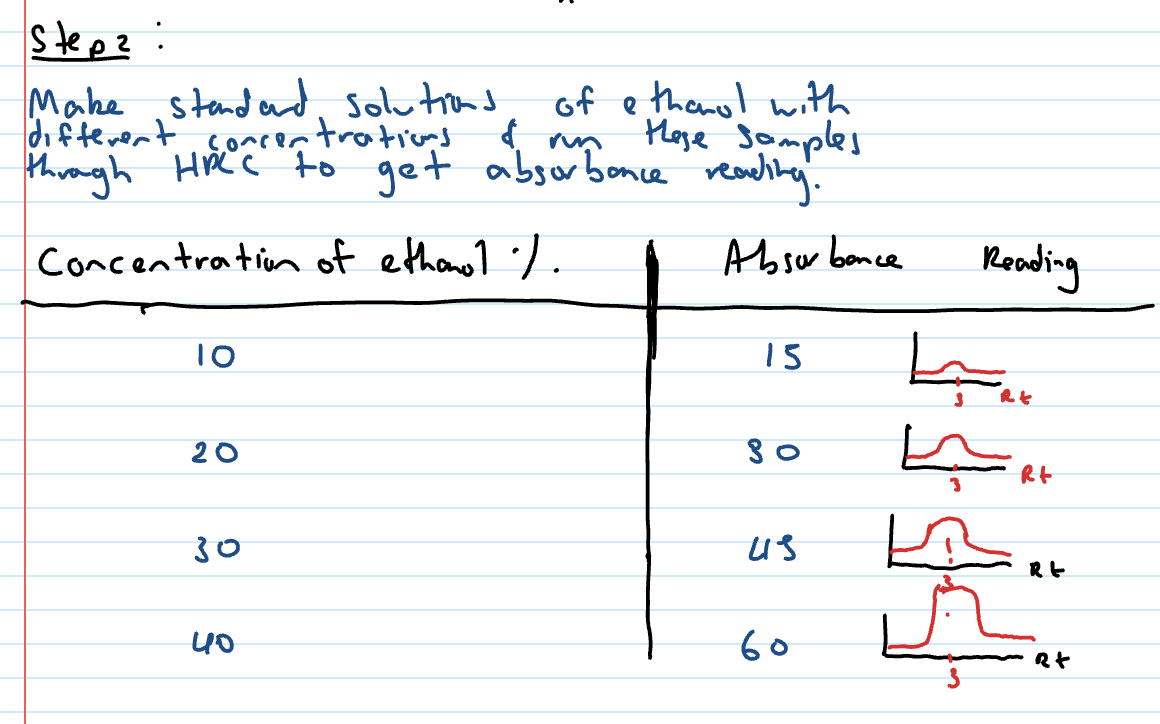 Step 2 :
Make standard solutions of ethanol with
different concentrations & run these samples
through HPLC to get absorbance reading.
Concentration of ethanol %. Absorbance Reading
10 15
3 Rt
20 30
3 Rt
30 45
3 Rt
40 60
3 Rt